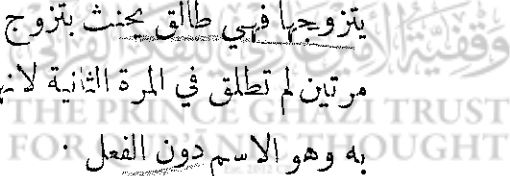 يتزوجها فهي طالق يحنث بتزوج
مرتين لم تطلق في المرة الثانية لانه
به وهو الاسم دون الفعل ٠
THE PRINCE GHAZI TRUST
FOR QUR'ĀNIC THOUGHT